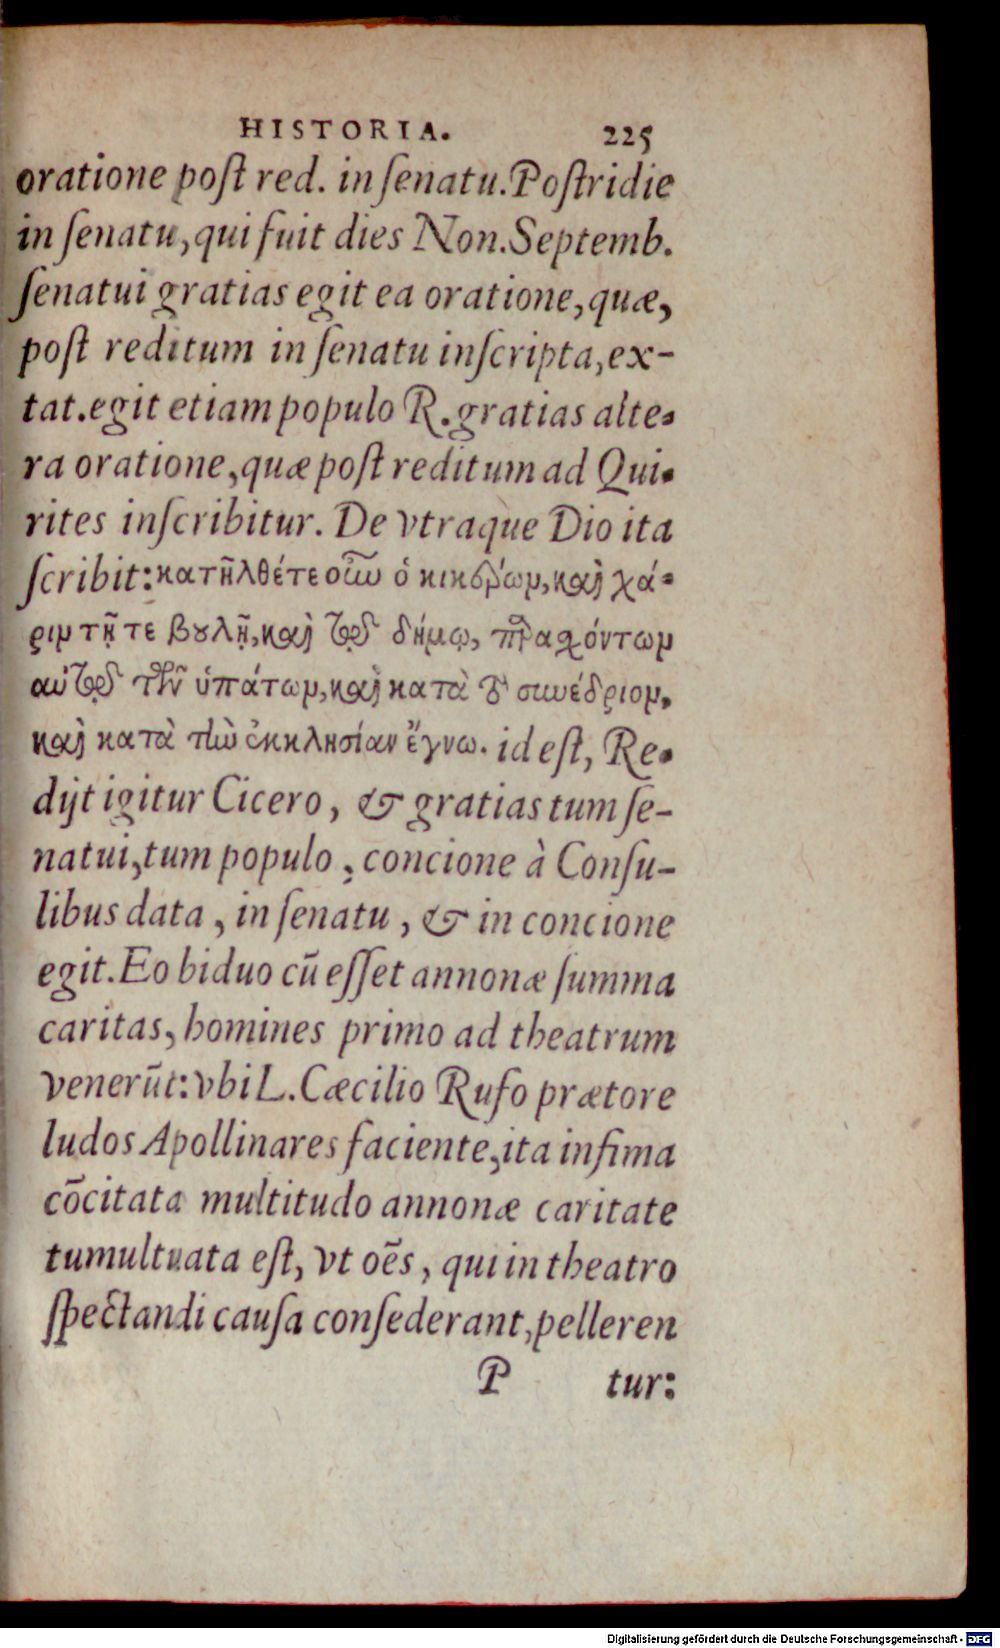 HISTORIA. 225
oratione poſt red. in ſenatu. Poſtridie
in ſenatu, qui fuit dies Non. Septemb.
ſenatui gratias egit ea oratione, quæ,
poſt reditum in ſenatu inſcripta, ex-
tat. egit etiam populo R. gratias alte-
ra oratione, quæ poſt reditum ad Qui-
rites inſcribitur. De vtraque Dio ita
ſcribit: κατῆλθέ τε οὖν ὁ κικέρων, καὶ χά-
ριν τῇ τε βουλῇ, καὶ τῷ δήμῳ, παρασχόντων
αὐτῷ τῶν ὑπάτων, καὶ κατὰ τὸ συνέδριον,
καὶ κατὰ τὴν ἐκκλησίαν ἔγνω. id eſt, Re-
dijt igitur Cicero, & gratias tum ſe-
natui, tum populo, concione à Conſu-
libus data, in ſenatu, & in concione
egit. Eo biduo cū eſſet annonæ ſumma
caritas, homines primo ad theatrum
venerūt: vbi L. Cæcilio Rufo prætore
ludos Apollinares faciente, ita infima
cōcitata multitudo annonæ caritate
tumultuata eſt, vt oēs, qui in theatro
ſpectandi cauſa conſederant, pelleren
P tur:
Digitalisierung gefördert durch die Deutsche Forschungsgemeinschaft - DFG